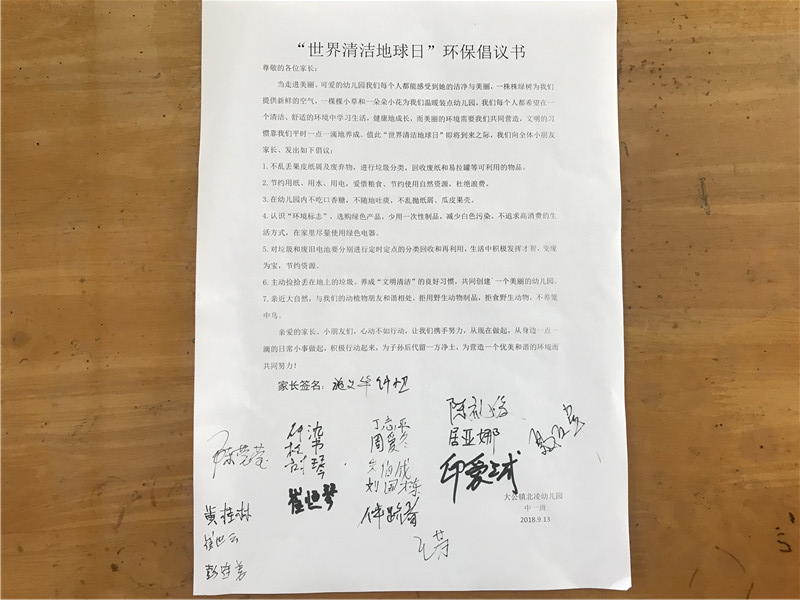 “世界清洁地球日”环保倡议书
尊敬的各位家长：
当走进美丽、可爱的幼儿园我们每个人都能感受到她的洁净与美丽，一株株绿树为我们
提供新鲜的空气，一棵棵小草和一朵朵小花为我们温暖装点幼儿园，我们每个人都希望在一
个清洁、舒适的环境中学习生活，健康地成长，而美丽的环境需要我们共同营造，文明的习
惯靠我们平时一点一滴地养成。值此“世界清洁地球日”即将到来之际，我们向全体小朋友
家长、发出如下倡议：
1.不乱丢果皮纸屑及废弃物，进行垃圾分类，回收废纸和易拉罐等可利用的物品。
2.节约用纸、用水、用电，爱惜粮食、节约使用自然资源，杜绝浪费。
3.在幼儿园内不吃口香糖，不随地吐痰，不乱抛纸屑、瓜皮果壳。
4.认识“环境标志”、选购绿色产品，少用一次性制品，减少白色污染，不追求高消费的生
活方式，在家里尽量使用绿色电器。
5.对垃圾和废旧电池要分别进行定时定点的分类回收和再利用，生活中积极发挥才智，变废
为宝，节约资源。
6.主动捡捡丢在地上的垃圾，养成“文明清洁”的良好习惯，共同创建一个美丽的幼儿园。
7.亲近大自然，与我们的动植物朋友和谐相处，拒用野生动物制品，拒食野生动物，不养笼
中鸟。
亲爱的家长、小朋友们，心动不如行动，让我们携手努力，从现在做起，从身边一点一
滴的日常小事做起，积极行动起来，为子孙后代留一方净土，为营造一个优美和谐的环境而
共同努力！
家长签名：施文华
丁志平
周爱冬
居亚娜
陈莹莹
崔恒琴
刘国栋
黄桂琳
大公镇北凌幼儿园
中一班
2018.9.13